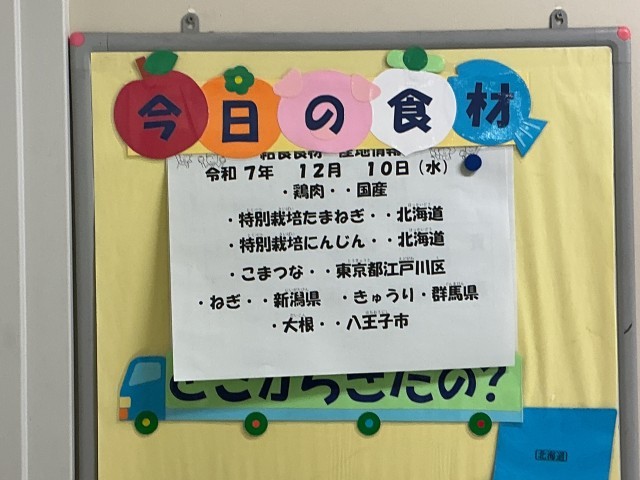 今日の食材
給食食材 産地情報
令和 7年 12月 10日（水）
・鶏肉・・国産
・特別栽培たまねぎ・・北海道
・特別栽培にんじん・・北海道
・こまつな・・東京都江戸川区
・ねぎ・・新潟県 ・きゅうり・群馬県
・大根・・八王子市
どこからきたの？
北海道